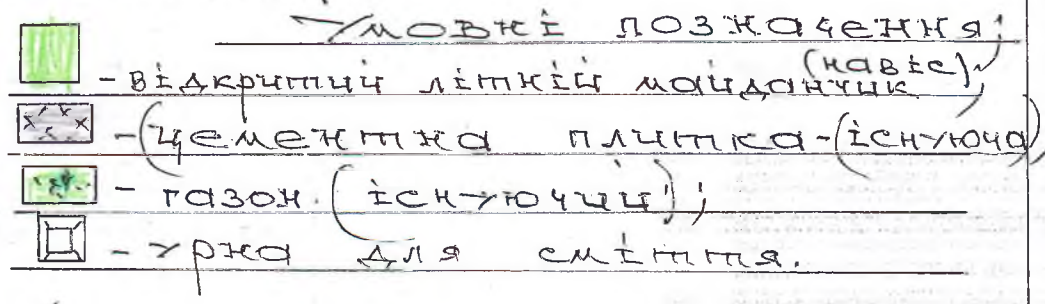 Умовні позначення:
- відкритий літній майданчик (навіс),
- (цементна плитка - (існуюча)
- газон. (існуючий);
- урна для сміття.